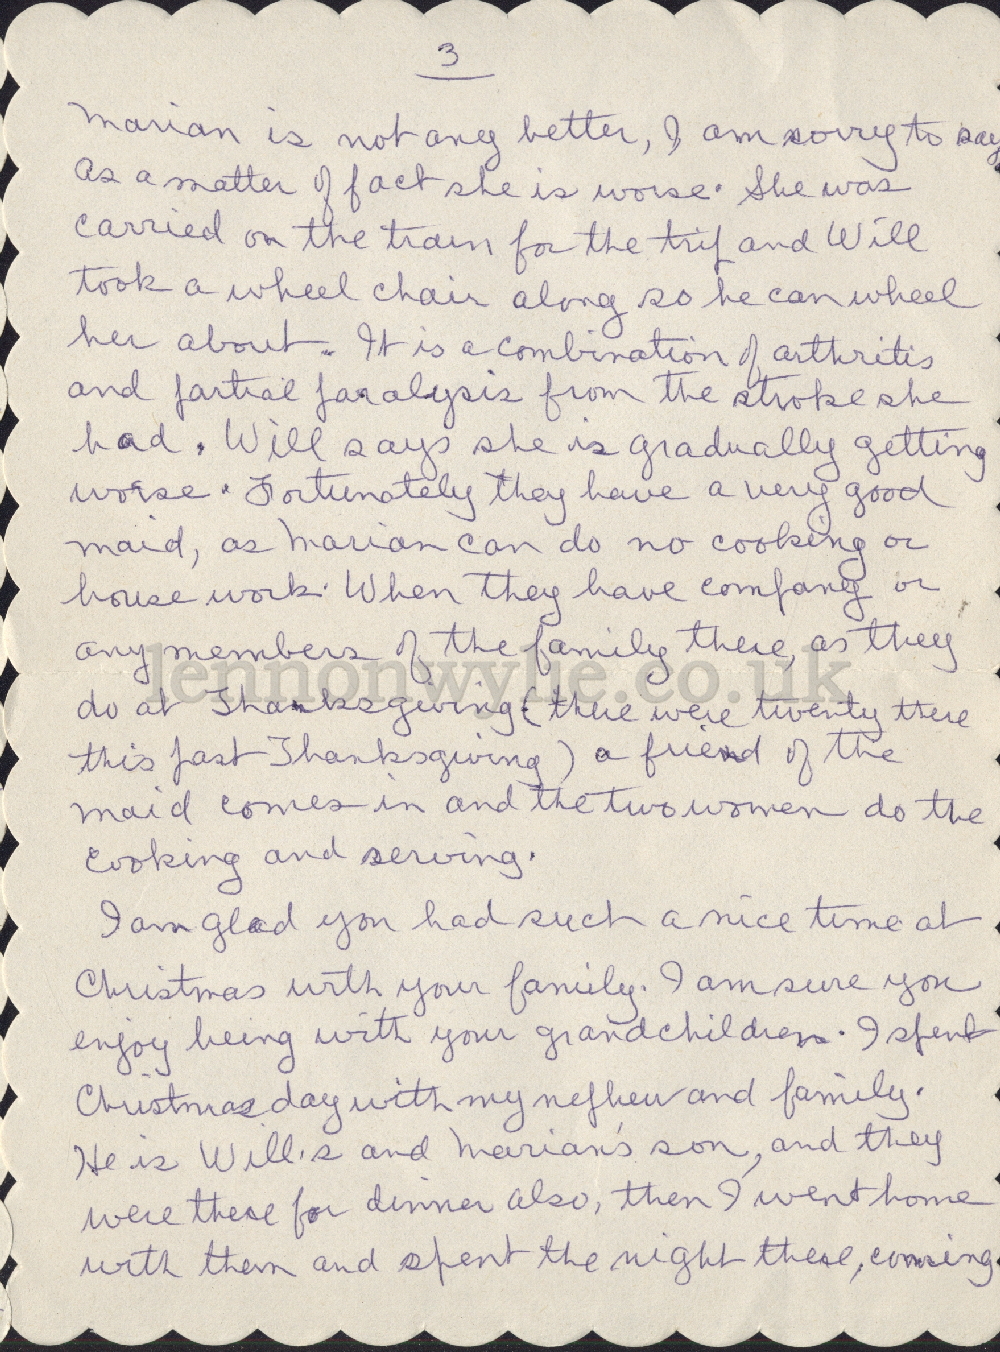 3
Marian is not any better, I am sorry to say
As a matter of fact she is worse. She was
carried on the train for the trip and Will
took a wheel chair along so he can wheel
her about. It is a combination of arthritis
and partial paralysis from the stroke she
had. Will says she is gradually getting
worse. Fortunately they have a very good
maid, as Marian can do no cooking or
house work. When they have company or
any members of the family there, as they
lennonwylie.co.uk
do at Thanksgiving (there were twenty there
this past Thanksgiving) a friend of the
maid comes in and the two women do the
cooking and serving.
I am glad you had such a nice time at
Christmas with your family. I am sure you
enjoy being with your grandchildren. I spent
Christmas day with my nephew and family.
He is Will's and Marian's son, and they
were there for dinner also, then I went home
with them and spent the night there, coming